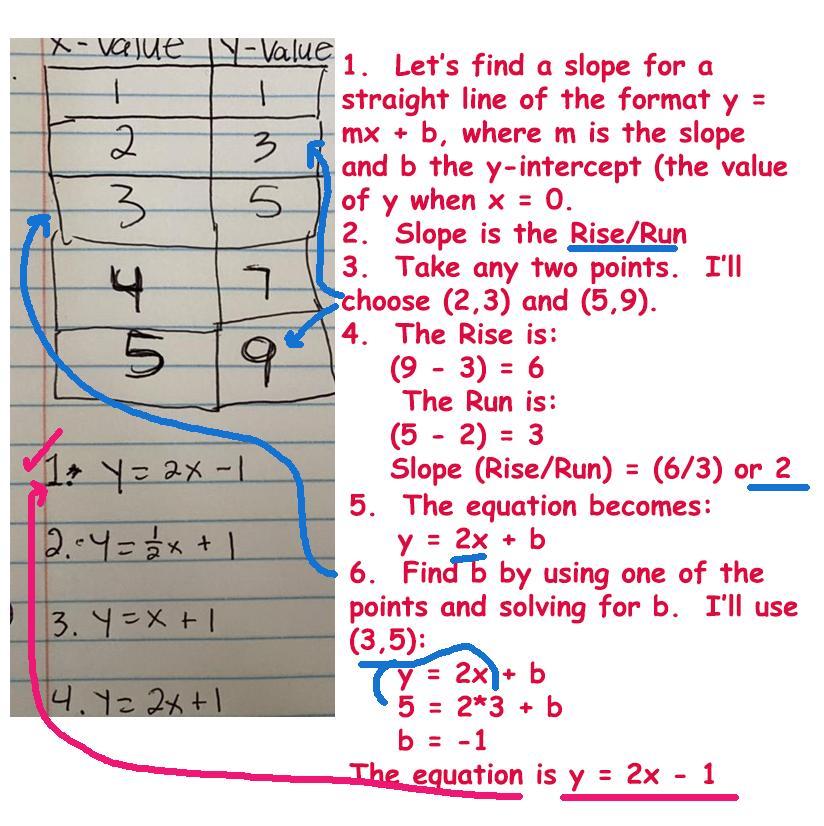 X-Value Y-Value
1 1
2 3
3 5
4 7
5 9
1. y = 2x - 1
2. y = 1/2x + 1
3. y = x + 1
4. y = 2x + 1
1. Let's find a slope for a
straight line of the format y =
mx + b, where m is the slope
and b the y-intercept (the value
of y when x = 0.
2. Slope is the Rise/Run
3. Take any two points. I'll
choose (2,3) and (5,9).
4. The Rise is:
(9 - 3) = 6
The Run is:
(5 - 2) = 3
Slope (Rise/Run) = (6/3) or 2
5. The equation becomes:
y = 2x + b
6. Find b by using one of the
points and solving for b. I'll use
(3,5):
y = 2x + b
5 = 2*3 + b
b = -1
The equation is y = 2x - 1